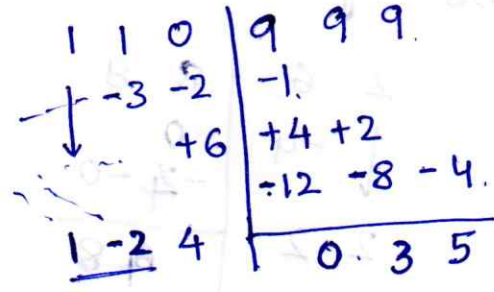 1 1 0 | 9 9 9.
↓ -3 -2 | -1.
+6 | +4 +2
-12 -8 -4.
1 -2 4 | 0. 3 5